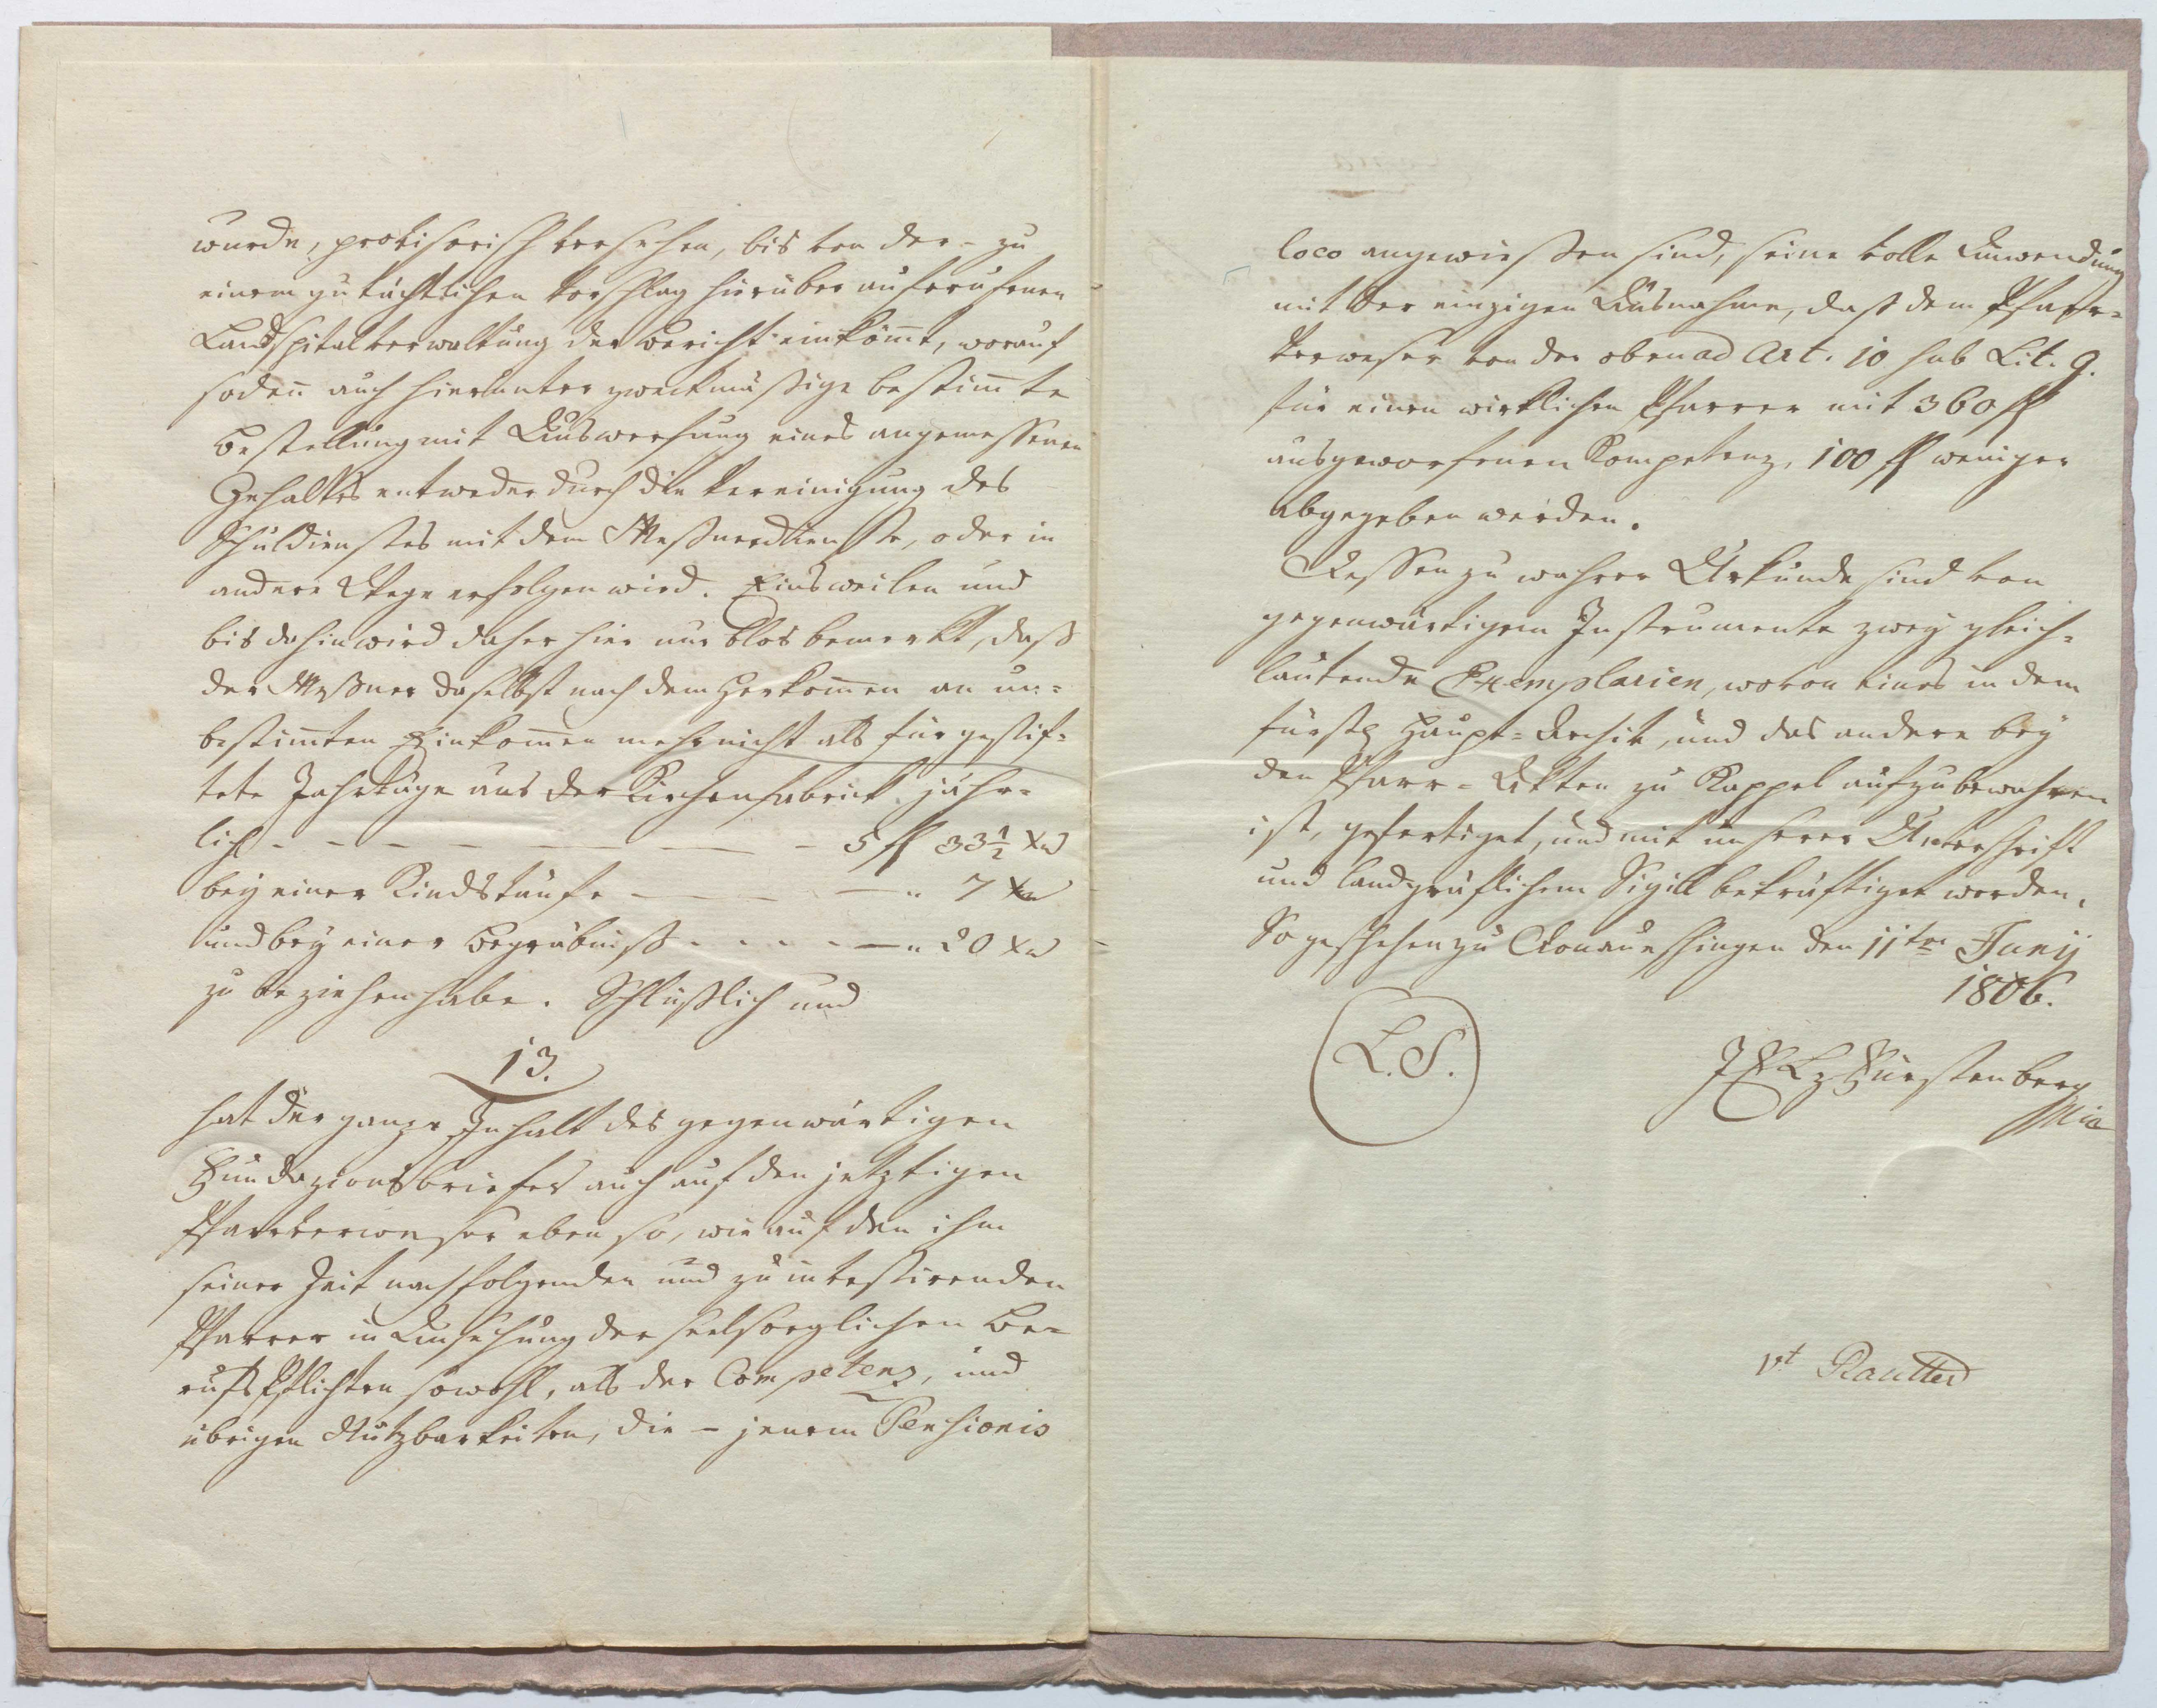 wurde, provisorisch versehen, bis von der - zu
einem gutächtlichen Vorschlag hierüber aufgerufenen
Landspitalverwaltung der Bericht einkömt, worauf
sodan̄ auch hierunter zweckmäßige bestim̄te
Bestellung mit Auswerfung eines angemessenen
Gehaltes entweder durch die Vereinigung des
Schuldienstes mit dem Meßnerdienste, oder in
andere Wege erfolgen wird. Einsweilen und
bis dahin wird daher hier nur blos bemerkt, daß
der Meßner daselbst nach dem Herkom̄en an un=
bestim̄ten Einkom̄en mehr nicht als für gestif=
tete Jahrtäge aus der Kirchenfabrick jähr=
lich - - - - - - - 5 fl 33 1/2 xr
bey einer Kindstaufe - - - " 7 xr
und bey einer Begräbniß - - - - " 20 xr
zu beziehen habe. Schlüßlich und
13.
hat der ganze Inhalt des gegenwärtigen
Fundazionsbriefes auch auf den jetztigen
Pfarrverweser eben so, wie auf den ihm
seiner Zeit nachfolgenden und zu investirenden
Pfarrer in Ansehung der seelsorglichen Be=
rufs Pflichten sowohl, als der Competenz, und
übrigen Nutzbarkeiten, die - jenem Pensionis
loco angewießen sind, seine volle Anwendung
mit der einzigen Ausnahme, daß dem Pfarr=
verweser von der oben ad Art. 10 sub Lit. g.
für einen wirklichen Pfarrer mit 360 fl
ausgeworfenen Kompetenz, 100 fl weniger
abgegeben werden.
Dessen zu wahrer Urkunde sind von
gegenwärtigem Instrumente zwey gleich=
lautende Exemplarien, wovon eines in dem
fürstl Haupt=Archiv, und das andere bey
den Pfarr=Akten zu Kappel aufzubewahren
ist, gefertiget, und mit unserer Unterschrift
und landgräflichem Sigill bekräftiget worden.
So geschehen zu Donaueschingen den 11ten Junij
1806.
L.S.
J E L z Fürstenberg
Mia
Vt Rautter